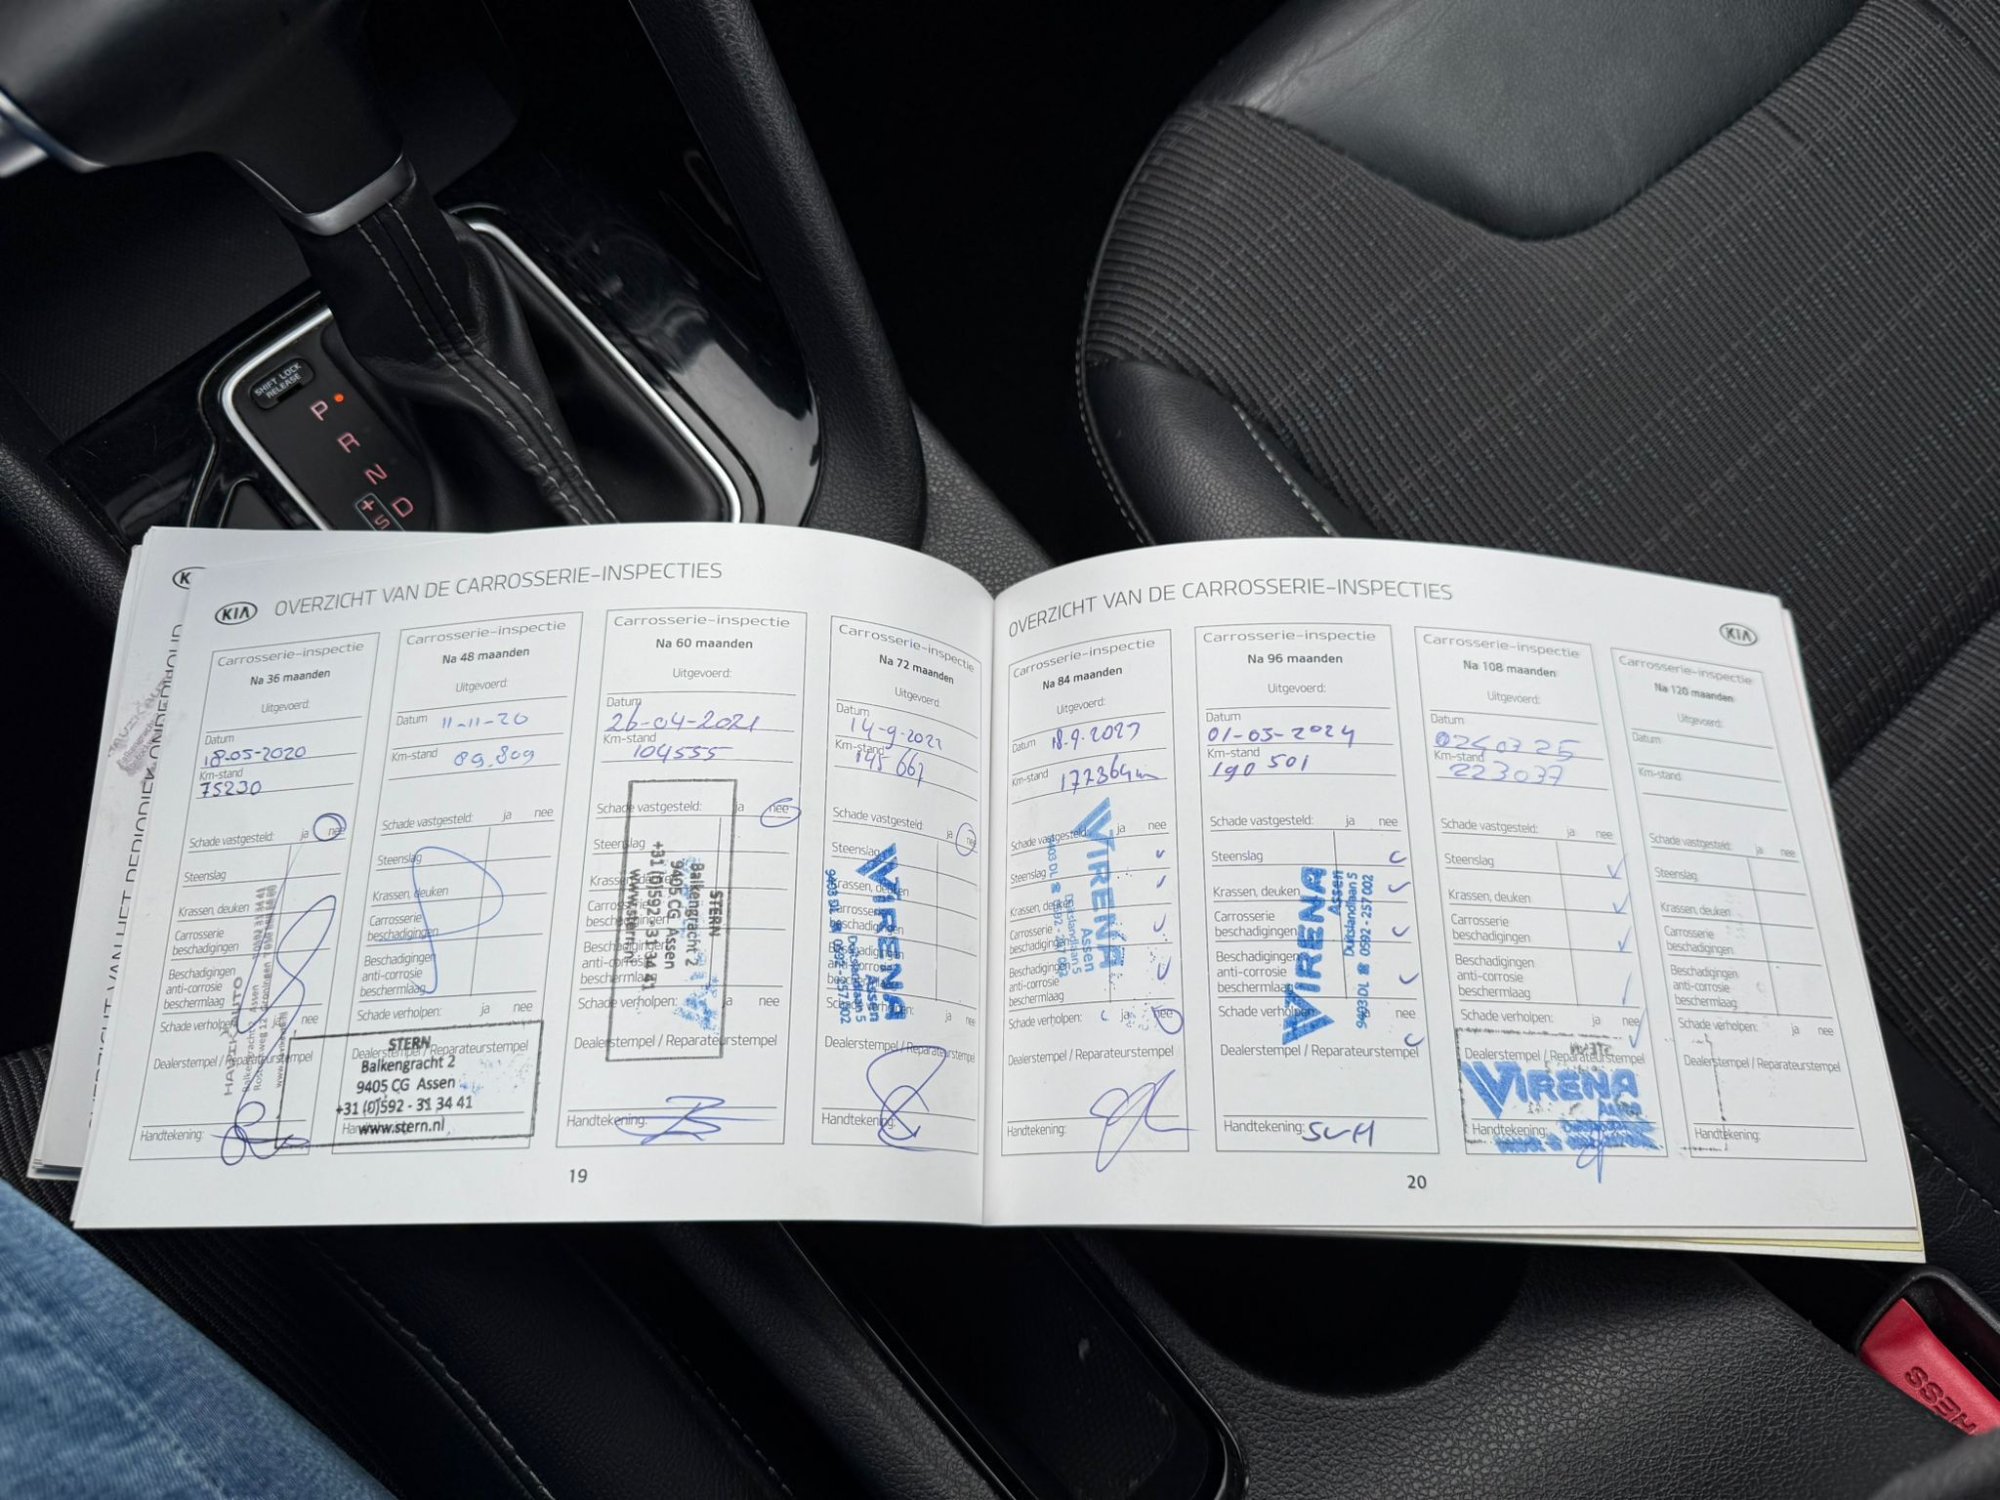 SHIFT LOCK
RELEASE
P
R
N
D
+
S
KIA
OVERZICHT VAN DE CARROSSERIE-INSPECTIES
Carrosserie-inspectie
Na 36 maanden
Uitgevoerd:
Datum
18-05-2020
Km-stand
75230
Schade vastgesteld: ja nee
Steenslag
Krassen, deuken
Carrosserie
beschadigingen
Beschadigingen
anti-corrosie
beschermlaag
Schade verholpen: ja nee
Dealerstempel / Reparateurstempel
Handtekening:
Carrosserie-inspectie
Na 48 maanden
Uitgevoerd:
Datum 11-11-20
Km-stand 89.809
Schade vastgesteld: ja nee
Steenslag
Krassen, deuken
Carrosserie
beschadigingen
Beschadigingen
anti-corrosie
beschermlaag
Schade verholpen: ja nee
Dealerstempel / Reparateurstempel
STERN
Balkengracht 2
9405 CG Assen
+31 (0)592 - 31 34 41
www.stern.nl
Carrosserie-inspectie
Na 60 maanden
Uitgevoerd:
Datum
26-04-2021
Km-stand
104555
Schade vastgesteld: ja nee
Steenslag
STERN
Balkengracht 2
9405 CG Assen
+31 (0)592 - 31 34 41
www.stern.nl
Schade verholpen: ja nee
Dealerstempel / Reparateurstempel
Handtekening:
Carrosserie-inspectie
Na 72 maanden
Uitgevoerd:
Datum
Km-stand
145 667
Schade vastgesteld: ja nee
Steenslag
VIRENA
Assen
9403 DL ☎ 0592 - 257 002
Dealerstempel / Reparateurstempel
Handtekening:
19
OVERZICHT VAN DE CARROSSERIE-INSPECTIES
KIA
Carrosserie-inspectie
Na 84 maanden
Uitgevoerd:
Datum 18.9.2023
Km-stand
Schade vastgesteld: ja nee
Steenslag
Krassen, deuken
Carrosserie
beschadigingen
Beschadigingen
anti-corrosie
beschermlaag
VIRENA
Assen
Schade verholpen: ja nee
Dealerstempel / Reparateurstempel
Handtekening:
Carrosserie-inspectie
Na 96 maanden
Uitgevoerd:
Datum
01-03-2024
Km-stand
190 501
Schade vastgesteld: ja nee
Steenslag
Krassen, deuken
Carrosserie
beschadigingen
Beschadigingen
anti-corrosie
beschermlaag
VIRENA
Assen
Duitslandlaan 5
9403 DL ☎ 0592 - 257 002
Schade verholpen: nee
Dealerstempel / Reparateurstempel
Handtekening: SVH
Carrosserie-inspectie
Na 108 maanden
Uitgevoerd:
Datum
Km-stand
223037
Schade vastgesteld: ja nee
Steenslag
Krassen, deuken
Carrosserie
beschadigingen
Beschadigingen
anti-corrosie
beschermlaag
Schade verholpen: ja nee
Dealerstempel / Reparateurstempel
VIRENA
Handtekening:
Carrosserie-inspectie
Na 120 maanden
Uitgevoerd:
Datum
Km-stand
Schade vastgesteld: ja nee
Steenslag
Krassen, deuken
Carrosserie
beschadigingen
Beschadigingen
anti-corrosie
beschermlaag
Schade verholpen: ja nee
Dealerstempel / Reparateurstempel
Handtekening:
20
PRESS